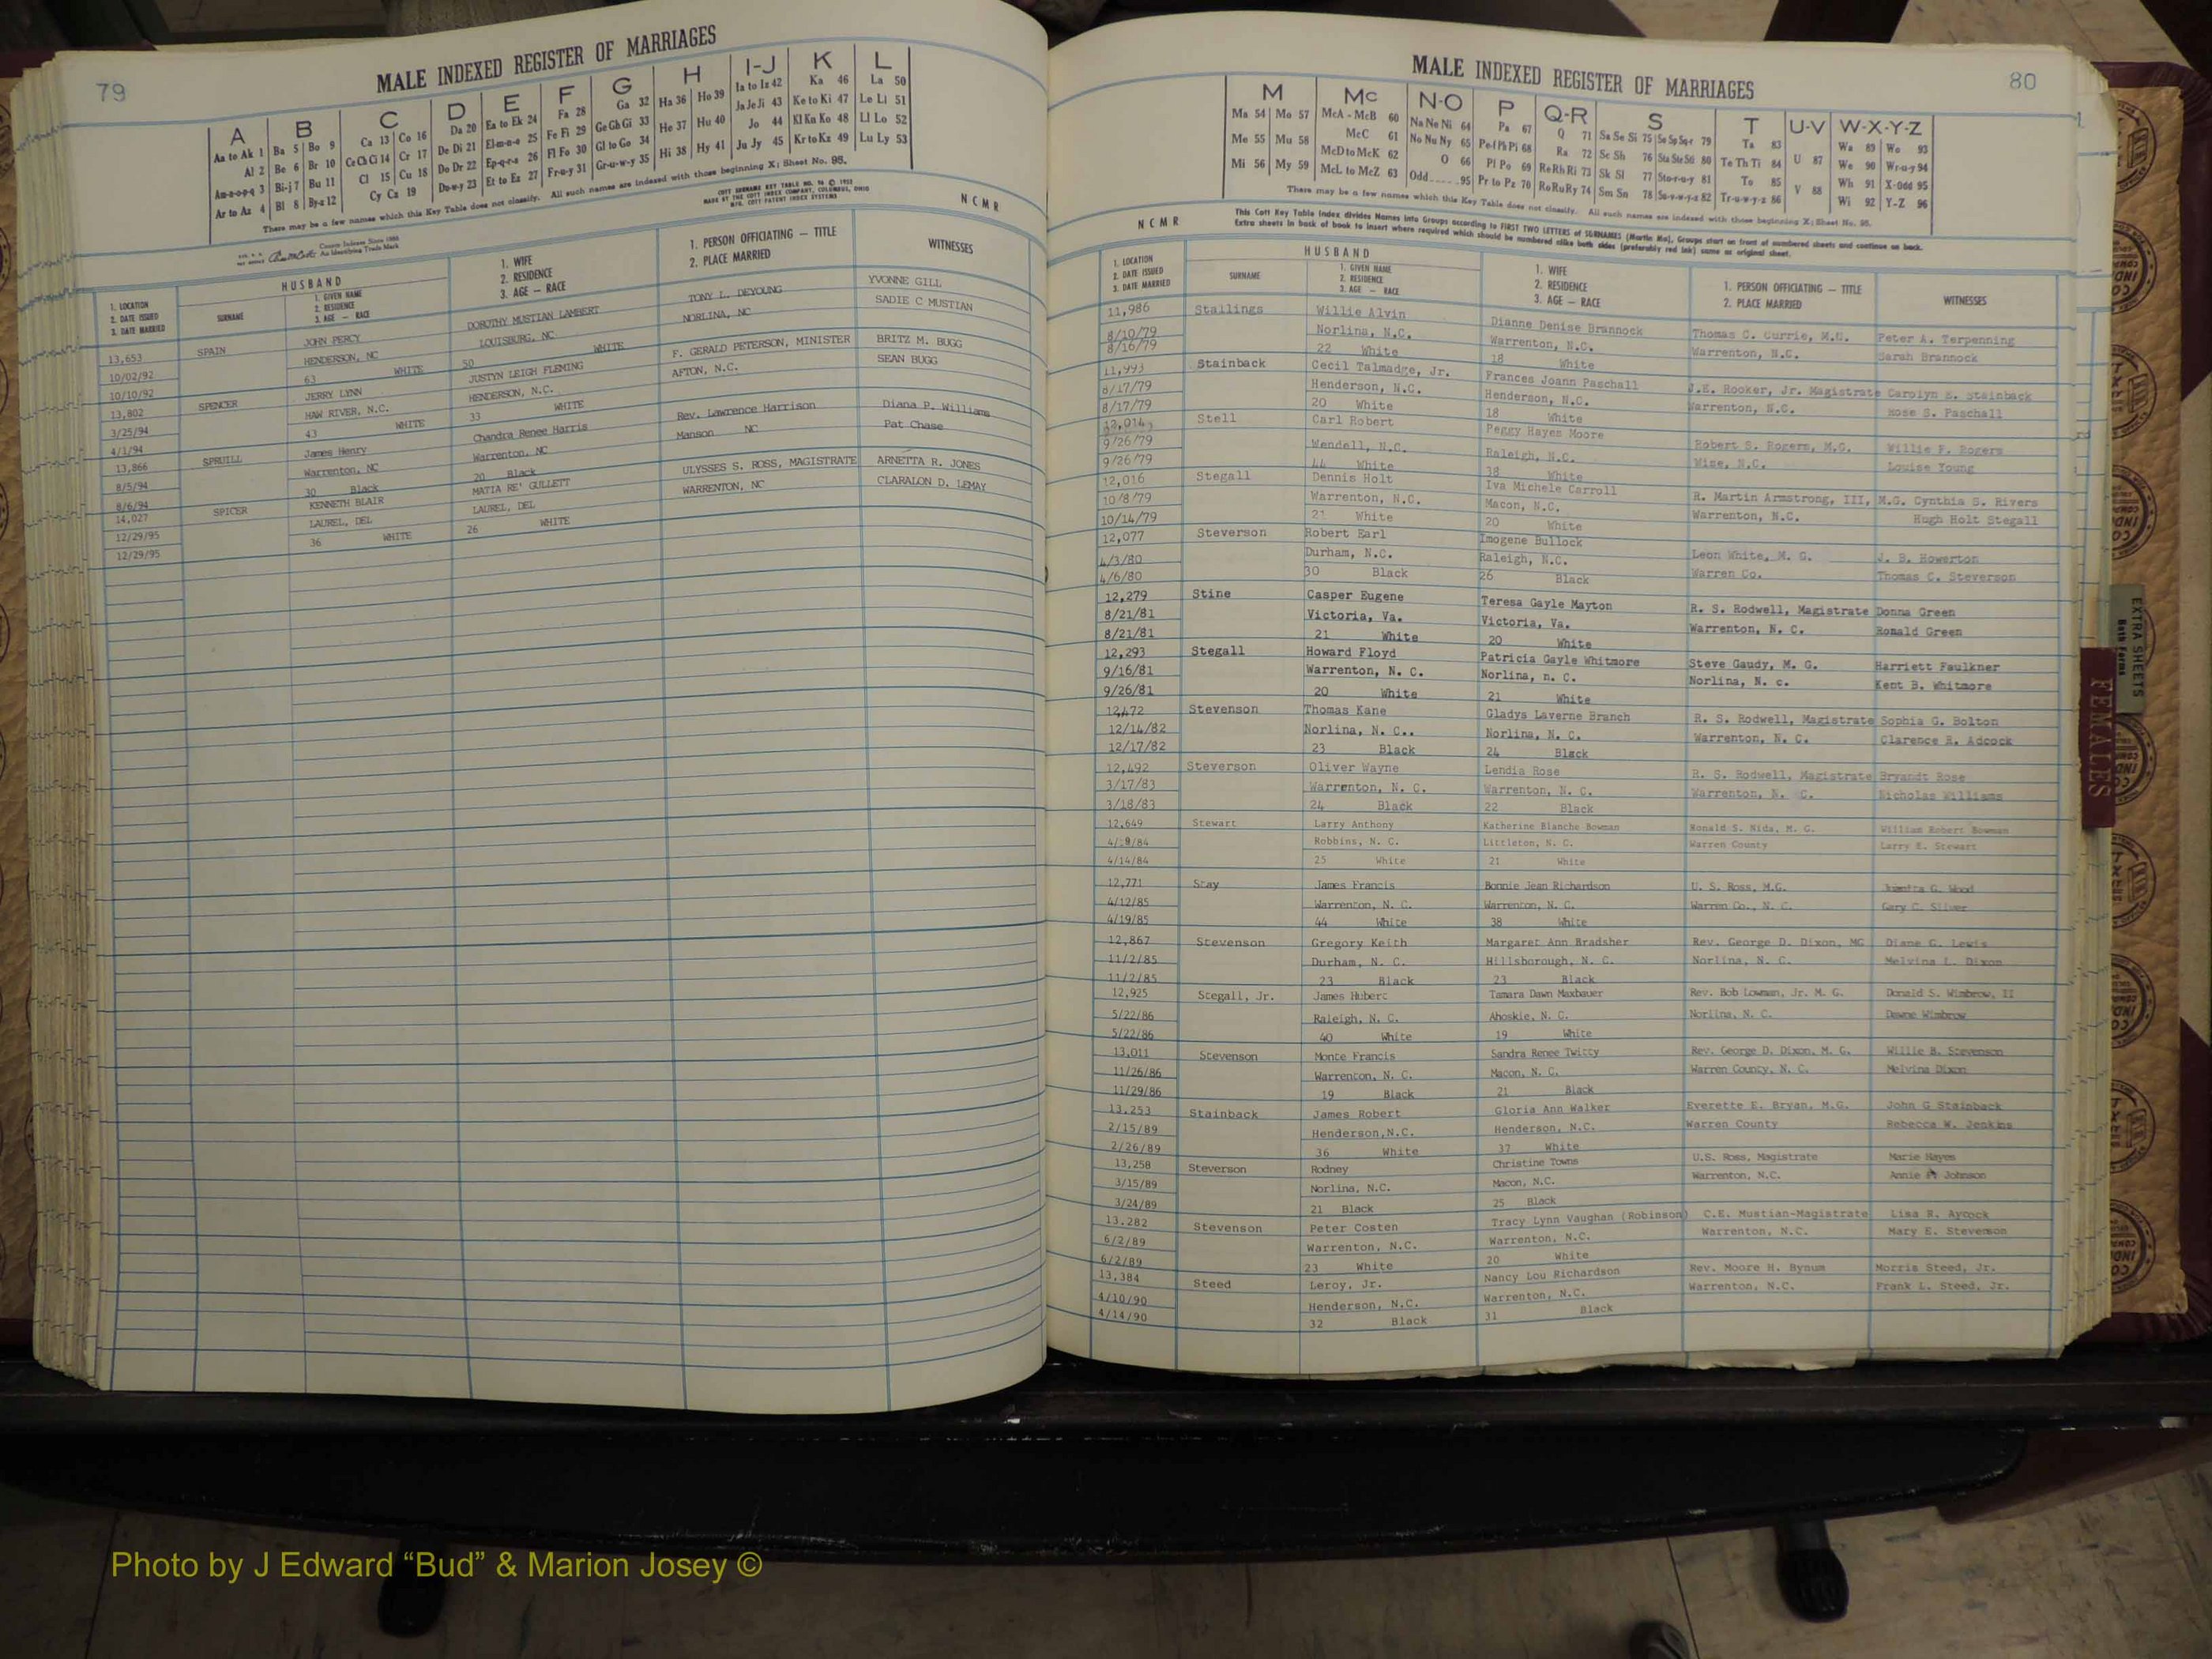 79
MALE INDEXED REGISTER OF MARRIAGES
A B C D E F G H I-J K L
Aa to Ak 1 Ba 5 Bo 9 Ca 13 Co 16 Da 20 Ea to Ek 24 Fa 28 Ga 32 Ha 36 Ho 39 Ia to Iz 42 Ka 46 La 50
Al 2 Be 6 Br 10 Ce Ch Ci 14 Cr 17 De Di 21 El-m-n-o 25 Fe Fi 29 Ge Gh Gi 33 He 37 Hu 40 Ja Je Ji 43 Ke to Ki 47 Le Li 51
Am-n-o-p-q 3 Bi-j 7 Bu 11 Cl 15 Cu 18 Do Dr 22 Ep-q-r-s 26 Fl Fo 30 Gl to Go 34 Hi 38 Hy 41 Jo 44 Kl Kn Ko 48 Ll Lo 52
Ar to Az 4 Bl 8 By-z 12 Cy Cz 19 Du-w-y 23 Et to Ez 27 Fr-u-y 31 Gr-u-w-y 35 Ju Jy 45 Kr to Kz 49 Lu Ly 53
There may be a few names which this Key Table does not classify. All such names are indexed with those beginning X; Sheet No. 95.
NCMR
HUSBAND
1. LOCATION 2. DATE ISSUED 3. DATE MARRIED
SURNAME
1. GIVEN NAME 2. RESIDENCE 3. AGE — RACE
1. WIFE 2. RESIDENCE 3. AGE — RACE
1. PERSON OFFICIATING — TITLE 2. PLACE MARRIED
WITNESSES
13,653 SPAIN JOHN PERCY DOROTHY MUSTIAN LAMBERT TONY L. DEYOUNG YVONNE GILL
10/02/92 HENDERSON, NC LOUISBURG, NC NORLINA, NC SADIE C MUSTIAN
10/10/92 63 WHITE 50 WHITE
13,802 SPENCER JERRY LYNN JUSTYN LEIGH FLEMING F. GERALD PETERSON, MINISTER BRITZ M. BUGG
3/25/94 HAW RIVER, N.C. HENDERSON, N.C. AFTON, N.C. SEAN BUGG
4/1/94 43 WHITE 33 WHITE
13,866 SPRUILL James Henry Chandra Renee Harris Rev. Lawrence Harrison Diana P. Williams
8/5/94 Warrenton, NC Warrenton, NC Manson NC Pat Chase
8/6/94 30 Black 20 Black
14,027 SPICER KENNETH BLAIR MATIA RE' GULLETT ULYSSES S. ROSS, MAGISTRATE ARNETTA R. JONES
12/29/95 LAUREL, DEL LAUREL, DEL WARRENTON, NC CLARALON D. LEMAY
12/29/95 36 WHITE 26 WHITE
80
MALE INDEXED REGISTER OF MARRIAGES
M Mc N-O P Q-R S T U-V W-X-Y-Z
Ma 54 Mo 57 McA - McB 60 Na Ne Ni 64 Pa 67 Q 71 Sa Se Si 75 So Sp Sq-r 79 Ta 83 Wa 89 Wo 93
Me 55 Mu 58 McC 61 No Nu Ny 65 Pe-f Ph Pi 68 Ra 72 Sc Sh 76 Sta Ste Sti 80 Te Th Ti 84 U 87 We 90 Wr-u-y 94
Mi 56 My 59 McD to McK 62 O 66 Pl Po 69 Re Rh Ri 73 Sk Sl 77 Sto-r-u-y 81 To 85 Wh 91 X-Odd 95
McL to McZ 63 Odd 95 Pr to Pz 70 Ro Ru Ry 74 Sm Sn 78 Su-v-w-y-z 82 Tr-u-w-y-z 86 V 88 Wi 92 Y-Z 96
There may be a few names which this Key Table does not classify. All such names are indexed with those beginning X; Sheet No. 95.
NCMR
This Cott Key Table Index divides Names into Groups according to FIRST TWO LETTERS of SURNAMES (Martin Ma), Groups start on front of numbered sheets and continue on back.
Extra sheets in back of book to insert where required which should be numbered alike both sides (preferably red ink) same as original sheet.
HUSBAND
1. LOCATION 2. DATE ISSUED 3. DATE MARRIED
SURNAME
1. GIVEN NAME 2. RESIDENCE 3. AGE — RACE
1. WIFE 2. RESIDENCE 3. AGE — RACE
1. PERSON OFFICIATING — TITLE 2. PLACE MARRIED
WITNESSES
11,986 Stallings Willie Alvin Dianne Denise Brannock Thomas C. Currie, M.G. Peter A. Terpenning
8/10/79 Norlina, N.C. Warrenton, N.C. Warrenton, N.C. Sarah Brannock
8/16/79 22 White 18 White
11,993 Stainback Cecil Talmadge, Jr. Frances Joann Paschall J.E. Rooker, Jr. Magistrate Carolyn E. Stainback
8/17/79 Henderson, N.C. Henderson, N.C. Warrenton, N.C. Rose S. Paschall
8/17/79 20 White 18 White
12,014 Stell Carl Robert Peggy Hayes Moore Robert S. Rogers, M.G. Willie F. Rogers
9/26/79 Wendell, N.C. Raleigh, N.C. Wise, N.C. Louise Young
9/26/79 44 White 38 White
12,016 Stegall Dennis Holt Iva Michele Carroll R. Martin Armstrong, III, M.G. Cynthia S. Rivers
10/8/79 Warrenton, N.C. Macon, N.C. Warrenton, N.C. Hugh Holt Stegall
10/14/79 21 White 20 White
12,077 Steverson Robert Earl Imogene Bullock Leon White, M. G. J. B. Howerton
4/3/80 Durham, N.C. Raleigh, N.C. Warren Co. Thomas C. Steverson
4/6/80 30 Black 26 Black
12,279 Stine Casper Eugene Teresa Gayle Mayton R. S. Rodwell, Magistrate Donna Green
8/21/81 Victoria, Va. Victoria, Va. Warrenton, N. C. Ronald Green
8/21/81 21 White 20 White
12,293 Stegall Howard Floyd Patricia Gayle Whitmore Steve Gaudy, M. G. Harriett Faulkner
9/16/81 Warrenton, N. C. Norlina, n. C. Norlina, N. c. Kent B. Whitmore
9/26/81 20 White 21 White
12,472 Stevenson Thomas Kane Gladys Laverne Branch R. S. Rodwell, Magistrate Sophia G. Bolton
12/14/82 Norlina, N. C.. Norlina, N. C. Warrenton, N. C. Clarence R. Adcock
12/17/82 23 Black 24 Black
12,492 Steverson Oliver Wayne Lendia Rose R. S. Rodwell, Magistrate Bryandt Rose
3/17/83 Warrenton, N. C. Warrenton, N. C. Warrenton, N. C. Nicholas Williams
3/18/83 24 Black 22 Black
12,649 Stewart Larry Anthony Katherine Blanche Bowman Ronald S. Nida, M. G. William Robert Bowman
Robbins, N. C. Littleton, N. C. Warren County Larry E. Stewart
4/14/84 25 White 21 White
12,771 Stay James Francis Bonnie Jean Richardson U. S. Ross, M.G. Juanita G. Wood
4/12/85 Warrenton, N. C. Warrenton, N. C. Warren Co., N. C. Gary C. Silver
4/19/85 44 White 38 White
12,867 Stevenson Gregory Keith Margaret Ann Bradsher Rev. George D. Dixon, MG Diane G. Lewis
11/2/85 Durham, N. C. Hillsborough, N. C. Norlina, N. C. Melvina L. Dixon
11/2/85 23 Black 23 Black
12,925 Stegall, Jr. James Hubert Tamara Dawn Maxbauer Rev. Bob Lowman, Jr. M. G. Donald S. Wimbrow, II
5/22/86 Raleigh, N. C. Ahoskie, N. C. Norlina, N. C. Dawne Wimbrow
5/22/86 40 White 19 White
13,011 Stevenson Monte Francis Sandra Renee Twitty Rev. George D. Dixon, M. G. Willie B. Stevenson
11/26/86 Warrenton, N. C. Macon, N. C. Warren County, N. C. Melvina Dixon
11/29/86 19 Black 21 Black
13,253 Stainback James Robert Gloria Ann Walker Everette E. Bryan, M.G. John G Stainback
2/15/89 Henderson,N.C. Henderson, N.C. Warren County Rebecca W. Jenkins
2/26/89 36 White 37 White
13,258 Steverson Rodney Christine Towns U.S. Ross, Magistrate Marie Hayes
3/15/89 Norlina, N.C. Macon, N.C. Warrenton, N.C. Annie Johnson
3/24/89 21 Black 25 Black
13.282 Stevenson Peter Costen Tracy Lynn Vaughan (Robinson) C.E. Mustian-Magistrate Lisa R. Aycock
6/2/89 Warrenton, N.C. Warrenton, N.C. Warrenton, N.C. Mary E. Stevenson
6/2/89 23 White 20 White
13,384 Steed Leroy, Jr. Nancy Lou Richardson Rev. Moore H. Bynum Morris Steed, Jr.
4/10/90 Henderson, N.C. Warrenton, N.C. Warrenton, N.C. Frank L. Steed, Jr.
4/14/90 32 Black 31 Black
EXTRA SHEETS
FEMALES
Photo by J Edward “Bud” & Marion Josey ©